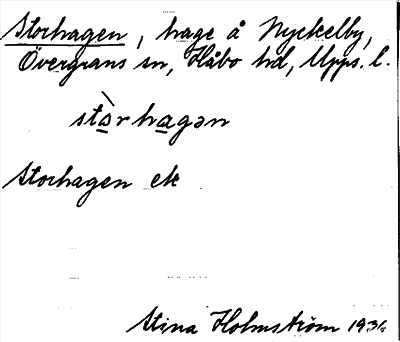 Storhagen, hage å Nyckelby,
Övergrans sn, Håbo hd, Upps. l.
stòrhagən
Storhagen ek
Stina Holmström 1931.